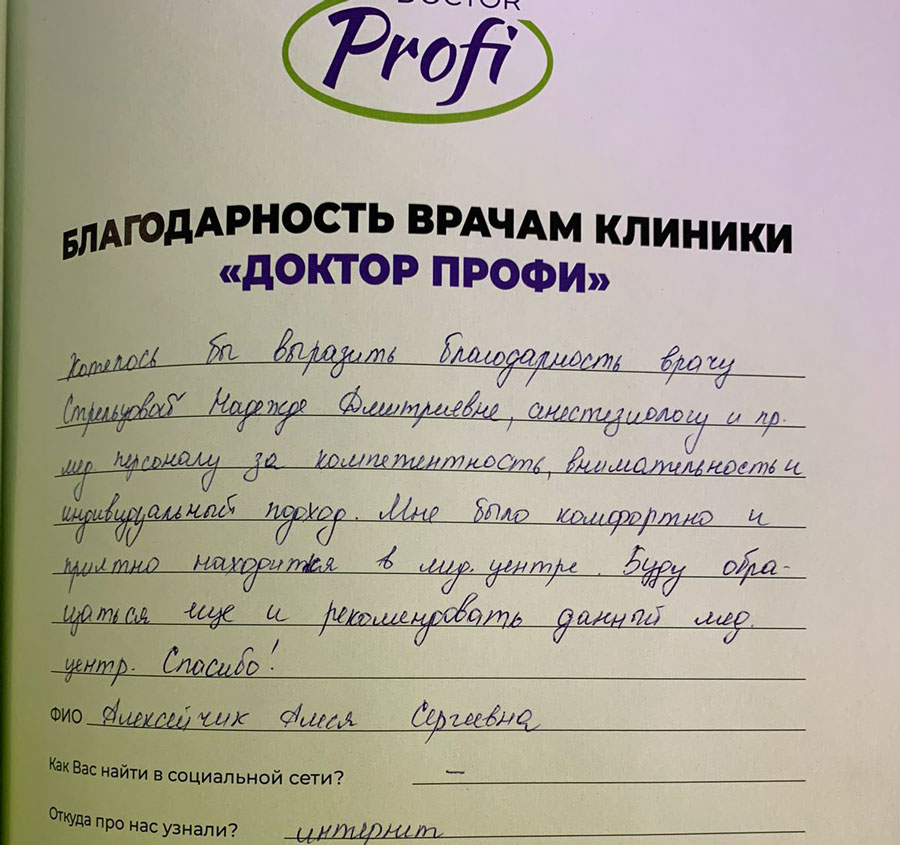 DOCTOR
Profi
БЛАГОДАРНОСТЬ ВРАЧАМ КЛИНИКИ
«ДОКТОР ПРОФИ»
Хотелось бы выразить благодарность врачу
Стрельцовой Надежде Дмитриевне, анестезиологу и пр.
мед. персоналу за компетентность, внимательность и
индивидуальный подход. Мне было комфортно и
приятно находится в мед. центре. Буду обра-
щаться еще и рекомендовать данный мед.
центр. Спасибо!
ФИО Алексейчик Алеся Сергеевна
Как Вас найти в социальной сети? —
Откуда про нас узнали? интернет